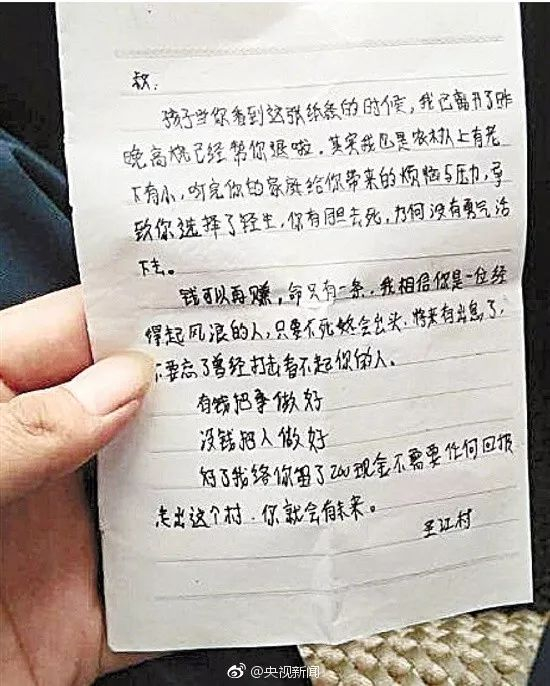 叔:
孩子当你看到这张纸条的时候,我已离开了昨
晚高烧已经帮你退啦.其实我也是农村人上有老
下有小,听完你的家庭给你带来的烦恼与压力,导
致你选择了轻生,你有胆去死,为何没有勇气活
下去。
钱可以再赚,命只有一条.我相信你是一位经
得起风浪的人,只要不死终会出头.将来有出息了,
不要忘了曾经打击看不起你的人.
有钱把事做好
没钱把人做好
好了我给你留了200现金不需要任何回报
走出这个村.你就会有未来。
王江村
@央视新闻